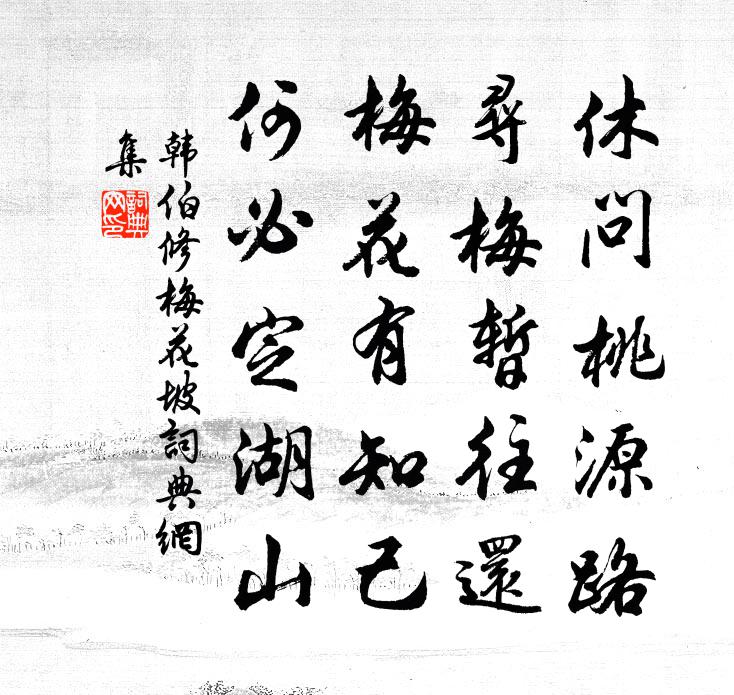 休問桃源路
尋梅暫往還
梅花有知己
何必定湖山
韩伯修梅花坡詞典網
集
詞典網印